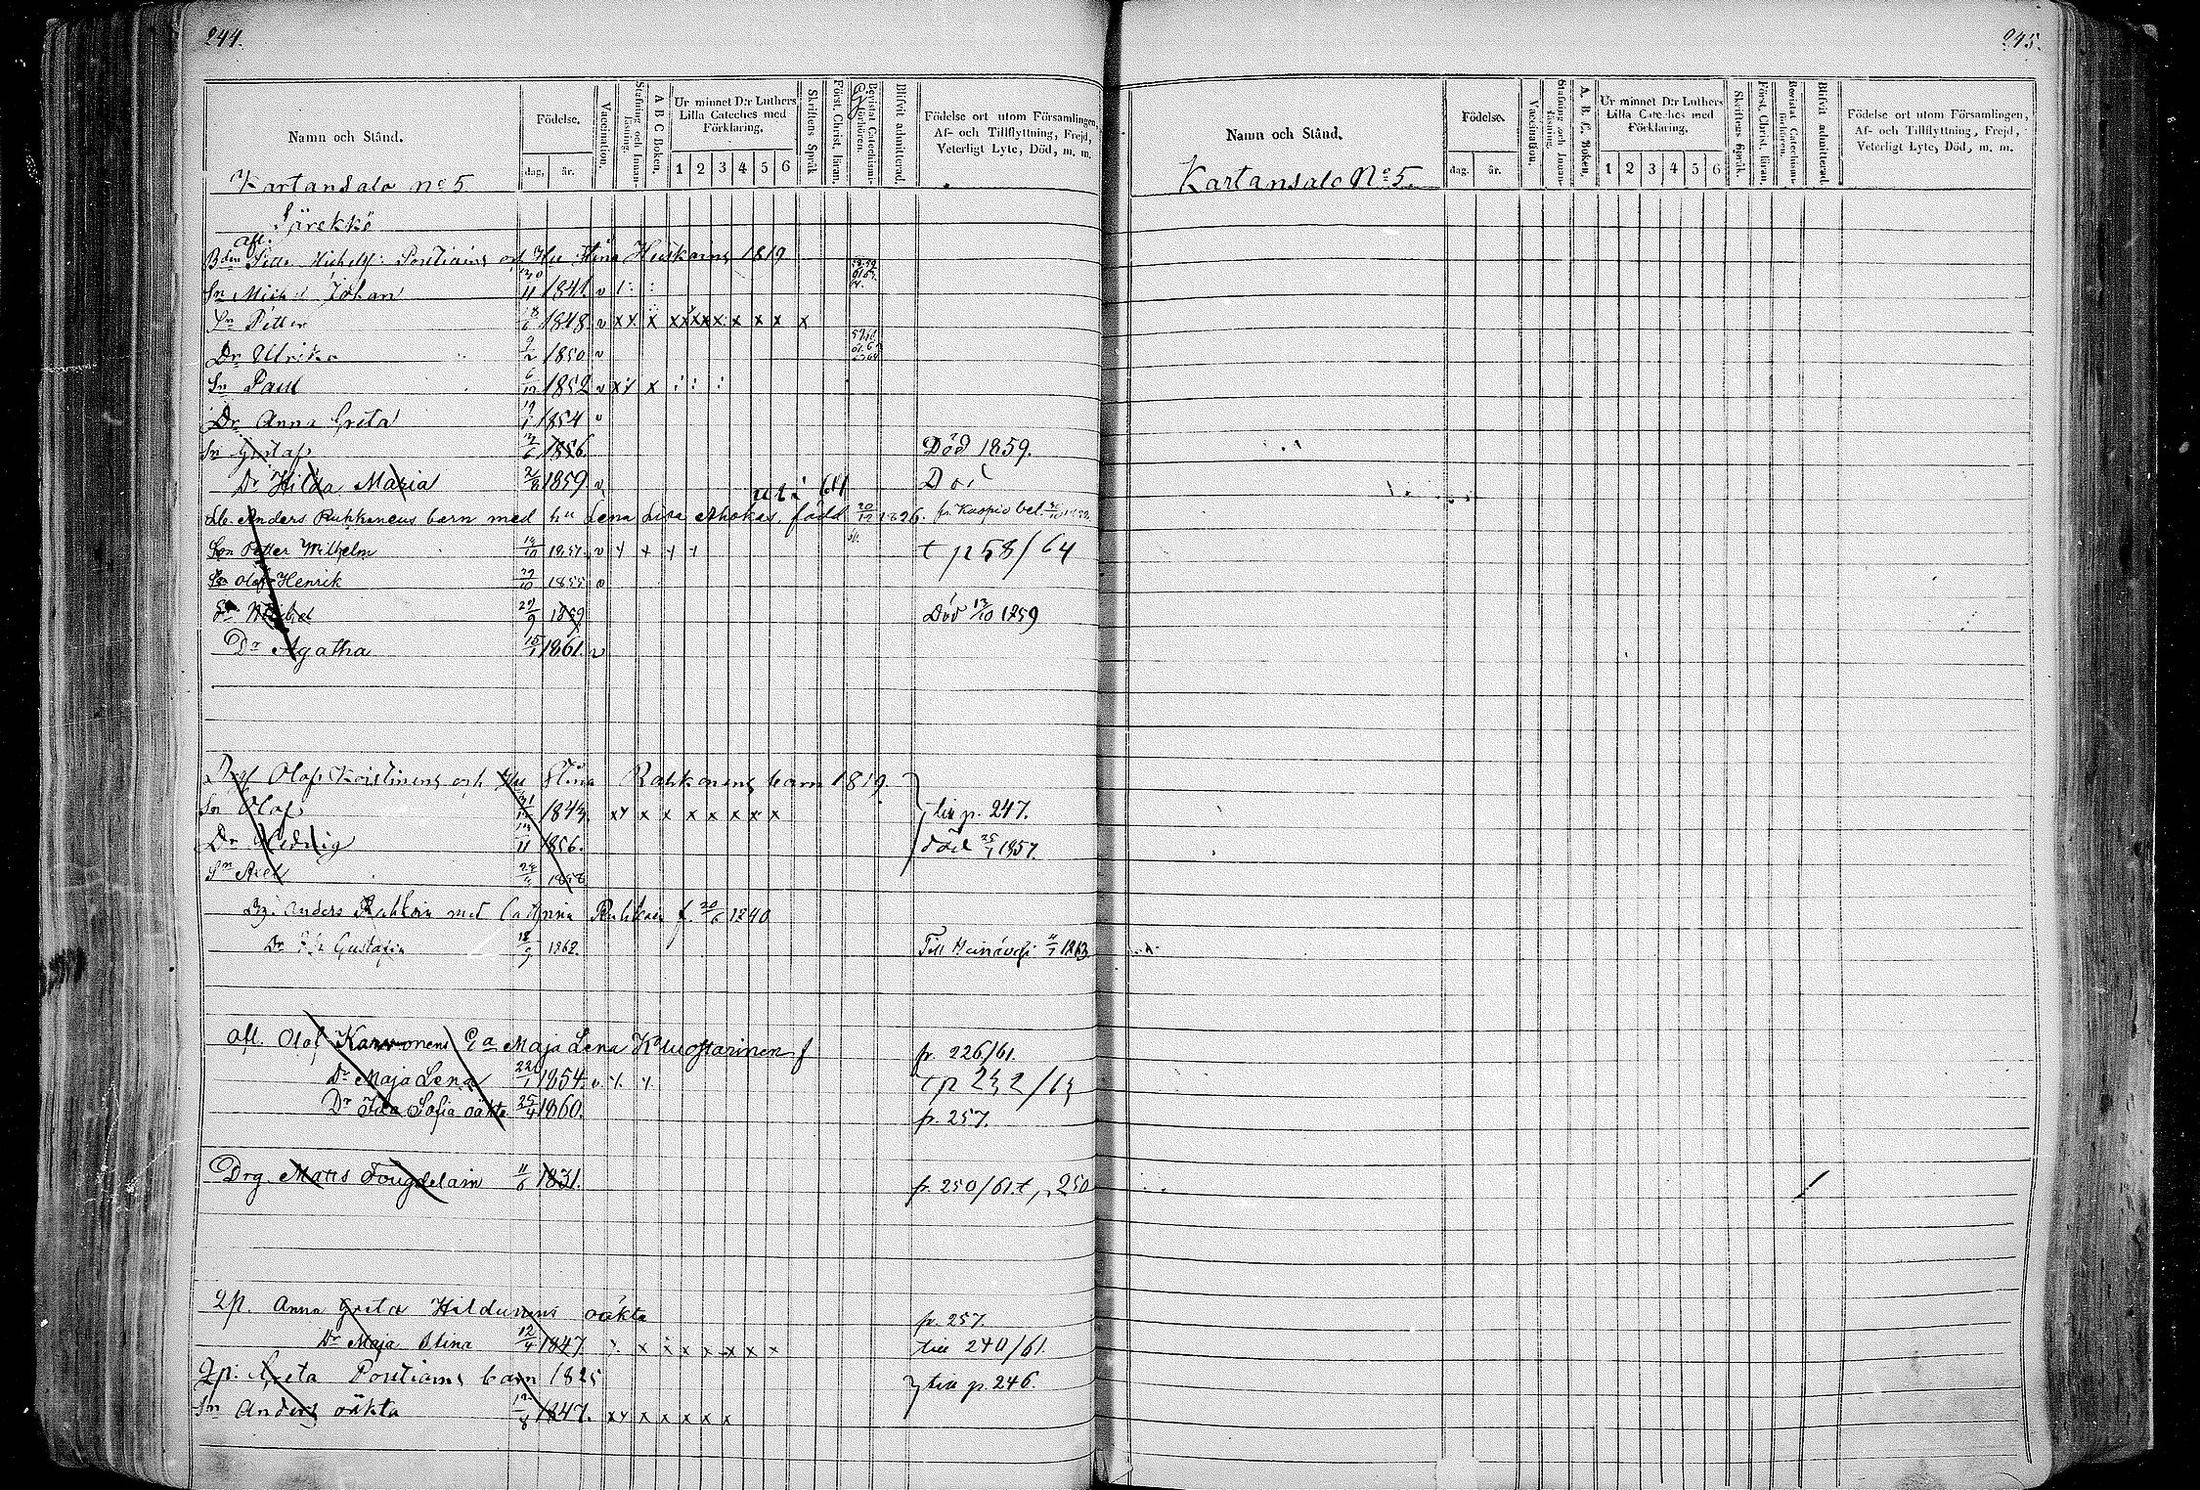 244.
Namn och Stånd.
Födelse.
dag, år.
Vaccination.
Stafning och Innan-läsning.
A B C Boken.
Ur minnet D:r Luthers Lilla Cateches med Förklaring.
1 2 3 4 5 6
Skriftens Språk
Först. Christ. liran.
Bevistat Catechismi-förhören.
Blifvit admitterad.
Födelse ort utom Församlingen, Af- och Tillflyttning, Frejd, Veterligt Lyte, Död, m. m.
Kartansalo No 5
Särekkö
afl.
Bdn Petter Michelss: Poutiains och Hu Stina Heiskains 1819
Sn Michel Johan 30/11 1841. v
Sn Petter 18/6 1848. v x x x x x x x x x x x x
Dr Ulrika 9/2 1850 v
Sn Paul 6/12 1852 v x x x
Dr Anna Greta 19/1 1854 v
Sn Gustaf 1856 Död 1859.
Dr Hilda Maria 1859 v Död
ut i 64
Lb. Anders Ruhkanens barn med hu Lena Lisa Ahokas, född 20/12 1826. fr. Kuopio bet.
Son Petter Wilhelm 1851. v x x x x t p 58/64
Sn Olof Henrik 29/10 1855 v
Sn Michel 29/9 1859 Död 13/10 1859
Dr Agatha 15/1 1861. v
Drgs Olof Koistinens och Hu Stina Rahkonens barn 1819.
Sn Olof 1843. x x x x x x x x till p. 247.
Dr Hedvig 11 1856. död 25/1 1857.
Sn Axel 1858
Anders Ruhkain med Ca Anna Ruhkain f. 20/6 1840
Dr Gustafva 18/9 1862. Till Heinävesi 11/7 1863
afl. Olof Karvonens Ea Maja Lena Kauostarinen f fr. 226/61.
Dr Maja Lena 22/1 1854. v x x t p 232/63
Dr Ida Sofia oäkta 25/4 1860. fr. 257.
Drg. Matts Fougdelain 11/6 1831. fr. 250/61. t p 250
Qp. Anna Greta Hildunens oäkta fr. 257.
Dr Maja Stina 12/4 1847 x x x x x x x x till 240/61.
Qp: Greta Poutiains barn 1825 till p. 246.
Sn Anders oäkta 12/8 1847. x x x x x x x
245.
Namn och Stånd.
Födelse.
dag. år.
Vaccination.
Stafning och Innan-läsning.
A. B. C. Boken.
Ur minnet D:r Luthers Lilla Cateches med Förklaring.
1 2 3 4 5 6
Skriftens Språk.
Först. Christ. liran.
Bevistat Catechismi-förhören.
Blifvit admitterad.
Födelse ort utom Församlingen, Af- och Tillflyttning, Frejd, Veterligt Lyte, Död, m. m.
Kartansalo No 5.